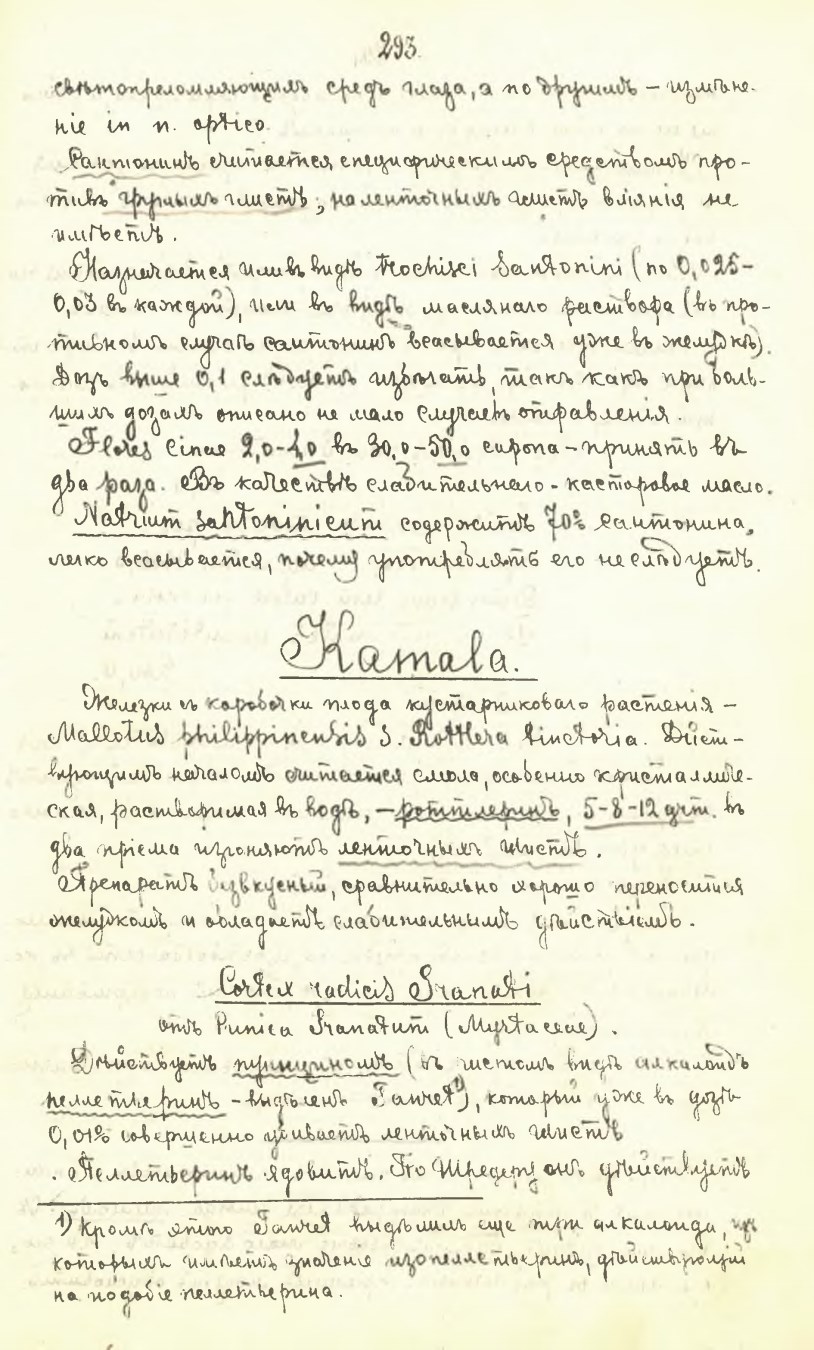 293
свѣтопреломляющихъ средъ глаза, а по другимъ – измѣне-
ніе in n. optico
Сантонинъ считается специфическимъ средствомъ про-
тивъ круглыхъ глистъ; на ленточныхъ глистъ вліянія не
имѣетъ.
Назначается или въ видѣ trochisci Santonini (по 0,025–
0,03 въ каждой), или въ видѣ маслянаго раствора (въ про-
тивномъ случаѣ сантонинъ всасывается уже въ желудкѣ).
Дозъ выше 0,1 слѣдуетъ избѣгать, такъ какъ при боль-
шихъ дозахъ описано не мало случаевъ отравленія.
Flores Cinae 2,0– въ 30,0–50,0 сиропа – принять въ
два раза. Въ качествѣ слабительнаго - касторовое масло.
Natrium santoninicum содержитъ 70% сантонина,
легко всасывается, почему употреблять его не слѣдуетъ.
Kamala.
Железки съ коробочки плода кустарниковаго растенія –
Mallotus philippinensis s. Rottlera tinctoria. Дѣйст-
вующимъ началомъ считается смола, особенно кристалличе-
ская, растворимая въ водѣ, – роттлеринъ, 5–8–12 grm. въ
два пріема изгоняютъ ленточныхъ глистъ.
Препаратъ безвкусный, сравнительно хорошо переносится
желудкомъ и обладаетъ слабительнымъ дѣйствіемъ.
Cortex radicis Granati
отъ Punica Granatum (Myrtaceae).
Дѣйствуетъ пуницинъ (въ чистомъ видѣ алкалоидъ
пеллетьеринъ - выдѣленъ Tanret¹⁾), который уже въ дозѣ
0,01% совершенно убиваетъ ленточныхъ глистъ
. Пеллетьеринъ ядовитъ. По Шредеру онъ дѣйствуетъ
¹⁾ Кромѣ этого Tanret выдѣлилъ еще три алкалоида, изъ
которыхъ имѣетъ значеніе изопеллетьеринъ, дѣйствующій
на подобіе пеллетьерина.